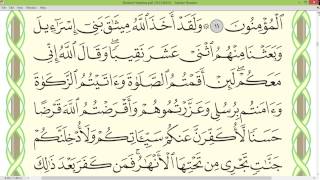 ٱلْمُؤْمِنُونَ ۝١١ وَلَقَدْ أَخَذَ ٱللَّهُ مِيثَٰقَ بَنِىٓ إِسْرَٰٓءِيلَ
وَبَعَثْنَا مِنْهُمُ ٱثْنَىْ عَشَرَ نَقِيبًا وَقَالَ ٱللَّهُ إِنِّى
مَعَكُمْ لَئِنْ أَقَمْتُمُ ٱلصَّلَوٰةَ وَءَاتَيْتُمُ ٱلزَّكَوٰةَ
وَءَامَنتُم بِرُسُلِى وَعَزَّرْتُمُوهُمْ وَأَقْرَضْتُمُ ٱللَّهَ قَرْضًا
حَسَنًا لَّأُكَفِّرَنَّ عَنكُمْ سَيِّـَٔاتِكُمْ وَلَأُدْخِلَنَّكُمْ
جَنَّٰتٍ تَجْرِى مِن تَحْتِهَا ٱلْأَنْهَٰرُ فَمَن كَفَرَ بَعْدَ ذَٰلِكَ